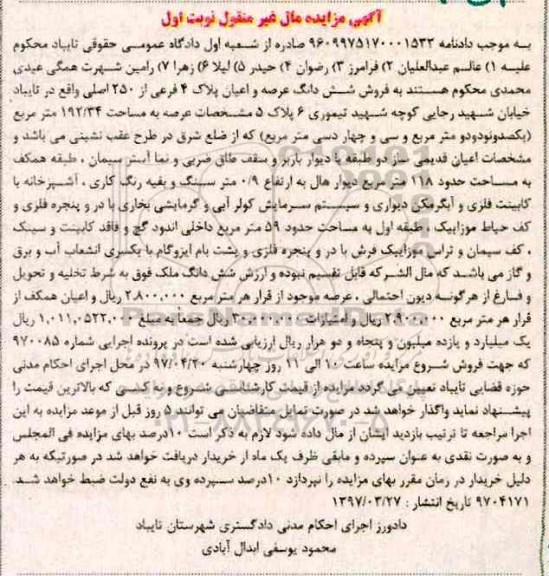 آگهی مزایده مال غیر منقول نوبت اول
به موجب دادنامه ۹۶۰۹۹۷۵۱۷۰۰۰۱۵۳۳ صادره از شعبه اول دادگاه عمومی حقوقی تایباد محکوم
علیه ۱) عالم عبدالعلیان ۲) فرامرز ۳) رضوان ۴) حیدر ۵) لیلا ۶) زهرا ۷) رامین شهرت همگی عیدی
محمدی محکوم هستند به فروش شش دانگ عرصه و اعیان پلاک ۴ فرعی از ۲۵۰ اصلی واقع در تایباد
خیابان شهید رجایی کوچه شهید تیموری ۶ پلاک ۵ مشخصات عرصه به مساحت ۱۹۲/۳۴ متر مربع
(یکصدونودودو متر مربع و سی و چهار دسی متر مربع) که از ضلع شرق در طرح عقب نشینی می باشد و
مشخصات اعیان قدیمی ساز دو طبقه با دیوار باربر و سقف طاق ضربی و نما آستر سیمان ، طبقه همکف
به مساحت حدود ۱۱۸ متر مربع دیوار هال به ارتفاع ۰/۹ متر سنگ و بقیه رنگ کاری ، آشپزخانه با
کابینت فلزی و آبگرمکن دیواری و سیستم سرمایش کولر آبی و گرمایشی بخاری با در و پنجره فلزی و
کف حیاط موزاییک ، طبقه اول به مساحت حدود ۵۹ متر مربع داخلی اندود گچ و فاقد کابینت و سینک
، کف سیمان و تراس موزاییک فرش با در و پنجره فلزی و پشت بام ایزوگام با یکسری انشعاب آب و برق
و گاز می باشد که مال الشرکه قابل تقسیم نبوده و ارزش شش دانگ ملک فوق به شرط تخلیه و تحویل
و فارغ از هرگونه دیون احتمالی ، عرصه موجود از قرار هر متر مربع ۲.۸۰۰.۰۰۰ ریال و اعیان همکف از
قرار هر متر مربع ۲.۹۰۰.۰۰۰ ریال و امتیازات ۳۰.۰۰۰.۰۰۰ ریال جمعاً به مبلغ ۱.۰۱۱.۰۵۲۲.۰۰۰ ریال
یک میلیارد و یازده میلیون و پنجاه و دو هزار ریال ارزیابی شده است در پرونده اجرایی شماره ۹۷۰۰۸۵
که جهت فروش شروع مزایده ساعت ۱۰ الی ۱۱ روز چهارشنبه ۹۷/۰۴/۲۰ در محل اجرای احکام مدنی
حوزه قضایی تایباد تعیین می گردد مزایده از قیمت کارشناسی شروع و به کسی که بالاترین قیمت را
پیشنهاد نماید واگذار خواهد شد در صورت تمایل متقاضیان می توانند ۵ روز قبل از موعد مزایده به این
اجرا مراجعه تا ترتیب بازدید ایشان از مال داده شود لازم به ذکر است ۱۰درصد بهای مزایده فی المجلس
و به صورت نقدی به عنوان سپرده و مابقی ظرف یک ماه از خریدار دریافت خواهد شد در صورتیکه به هر
دلیل خریدار در زمان مقرر بهای مزایده را نپردازد ۱۰درصد سپرده وی به نفع دولت ضبط خواهد شد.
۹۷۰۴۱۷۱ تاریخ انتشار : ۱۳۹۷/۰۳/۲۷
دادورز اجرای احکام مدنی دادگستری شهرستان تایباد
محمود یوسفی ابدال آبادی